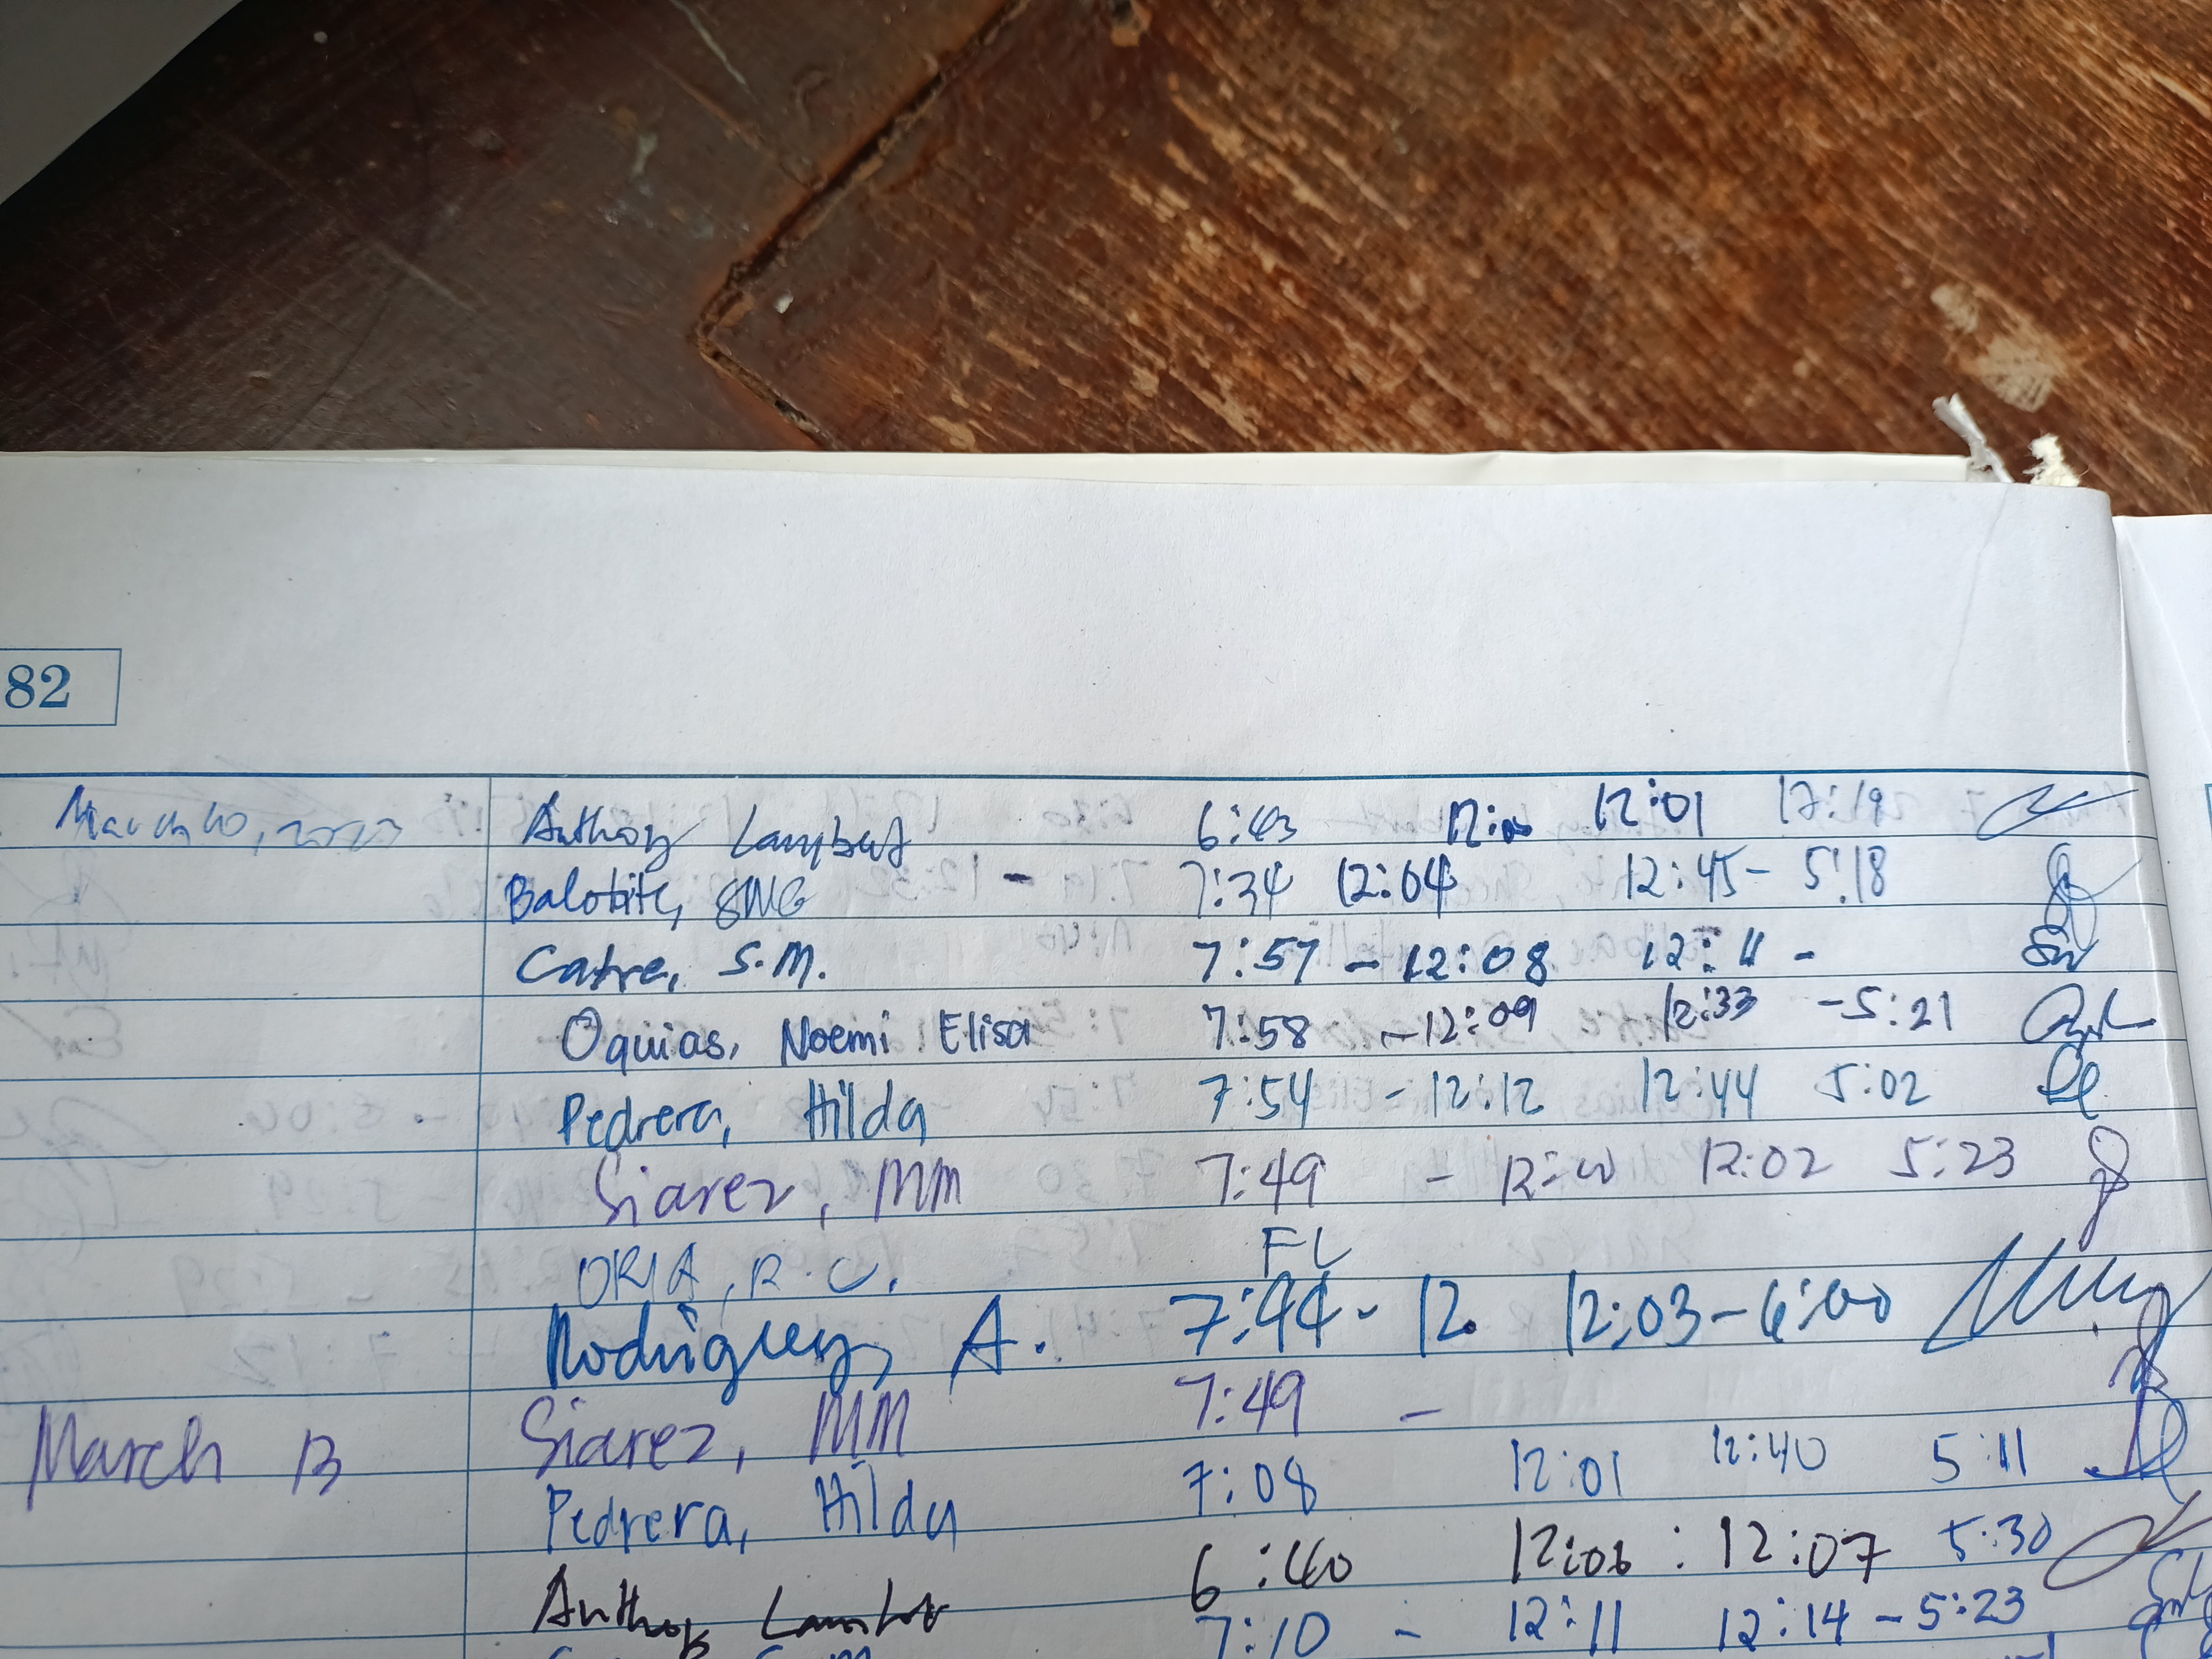 82
March 10, 2023 Anthony Lambert 6:43 12:00 12:01 17:19
Balobite, SMG - 7:34 12:04 12:45 - 5:18
Catre, S.M. 7:57 - 12:08 12:11 -
Oquias, Noemi Elisa 7:58 - 12:09 12:33 - 5:21
Pedrera, Hilda 7:54 - 12:12 12:44 5:02
Siarez, MM 7:49 - 12:00 12:02 5:23
ORIA, R.C. FL
Rodriguez, A. 7:44 - 12. 12:03 - 6:00
March 13 Siarez, MM 7:49 -
Pedrera, Hilda 7:08 12:01 12:40 5:11
Anthony Lambert 6:40 12:06 : 12:07 5:30
7:10 - 12:11 12:14 - 5:23